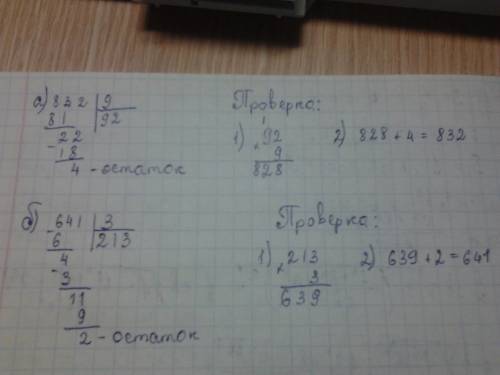 а) 832 | 9
81 | 92
22
- 18
4 - остаток
Проверка:
1) 92
× 9
828
2) 828 + 4 = 832
б) - 641 | 3
6 | 213
- 4
3
11
9
2 - остаток
Проверка:
1) 213
× 3
639
2) 639 + 2 = 641